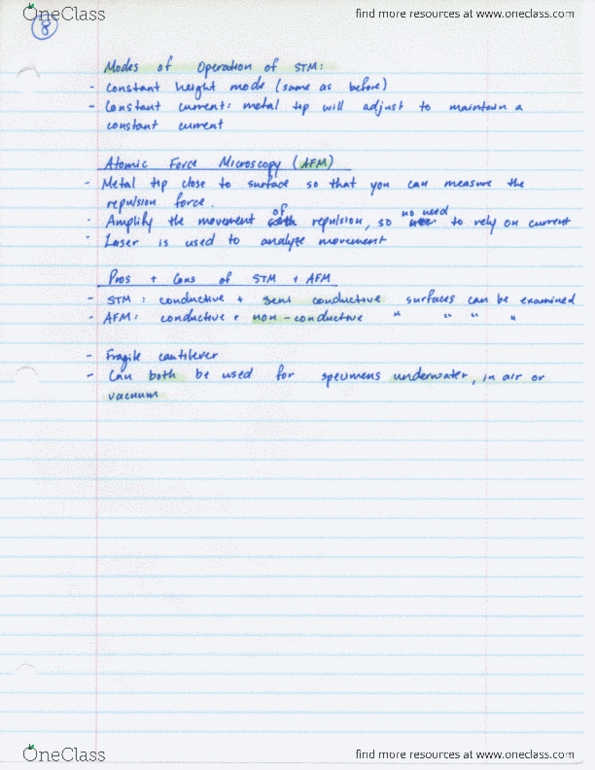 OneClass find more resources at www.oneclass.com
8
Modes of Operation of STM:
- Constant height mode (same as before)
- Constant current: metal tip will adjust to maintain a
constant current
Atomic Force Microscopy (AFM)
- Metal tip close to surface so that you can measure the
repulsion force.
- Amplify the movement of repulsion, so no need to rely on current
- Laser is used to analyze movement
Pros + Cons of STM + AFM
- STM: conductive + semi conductive surfaces can be examined
- AFM: conductive + non-conductive " " " "
- Fragile cantilever
- Can both be used for specimens underwater, in air or
vacuum
OneClass find more resources at www.oneclass.com